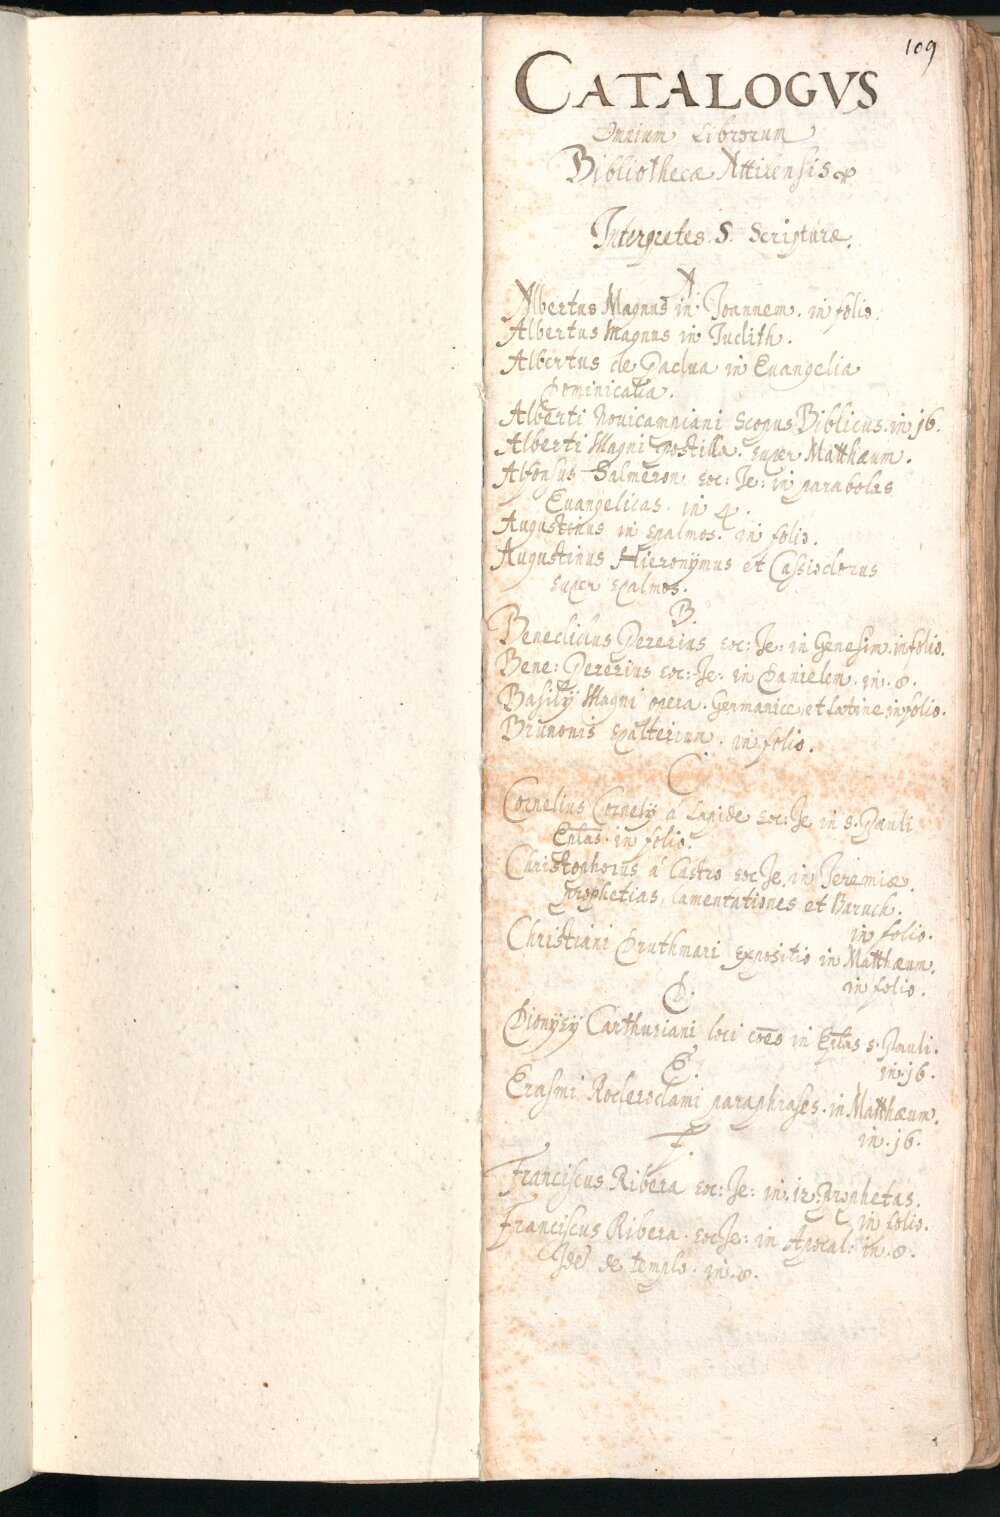 109
CATALOGVS
Omnium Librorum
Bibliothecæ Attilensis
Interpretes. S. Scripturæ.
A
Albertus Magnus in Joannem. in folio.
Albertus Magnus in Judith.
Albertus de Padua in Euangelia
Dominicalia.
Alberti Nouicampiani Scopus Biblicus. in 16.
Alberti Magni postilla. super Matthæum.
Alfonsus Salmeron soc: Je: in parabolas
Euangelicas. in 4.
Augustinus in psalmos. in folio.
Augustinus Hieronÿmus et Cassiodorus
super psalmos.
B.
Benedictus Pererius soc: Je: in Genesim. in folio.
Bene: Pererius soc: Je: in Danielem. in. 8.
Basilÿ Magni opera. Germanice et latine in folio.
Brunonis psalterium. in folio.
C.
Cornelius Cornelÿ á Lapide soc: Je in S. Pauli
Eptas. in folio.
Christophorus á Castro soc Je, in Jeremiæ.
prophetias, lamentationes et Baruch.
in folio.
Christiani Druthmari expositio in Matthæum.
in folio.
D.
Dionÿsÿ Carthusiani loci cões in Eptas S. Pauli.
in. 16.
E.
Erasmi Roterodami paraphrases. in Matthæum.
in. 16.
F.
Franciscus Ribera soc: Je: in. 12. prophetas.
in folio.
Franciscus Ribera. soc Je: in Apocal: in. 8.
Idē de templo. in. 8.